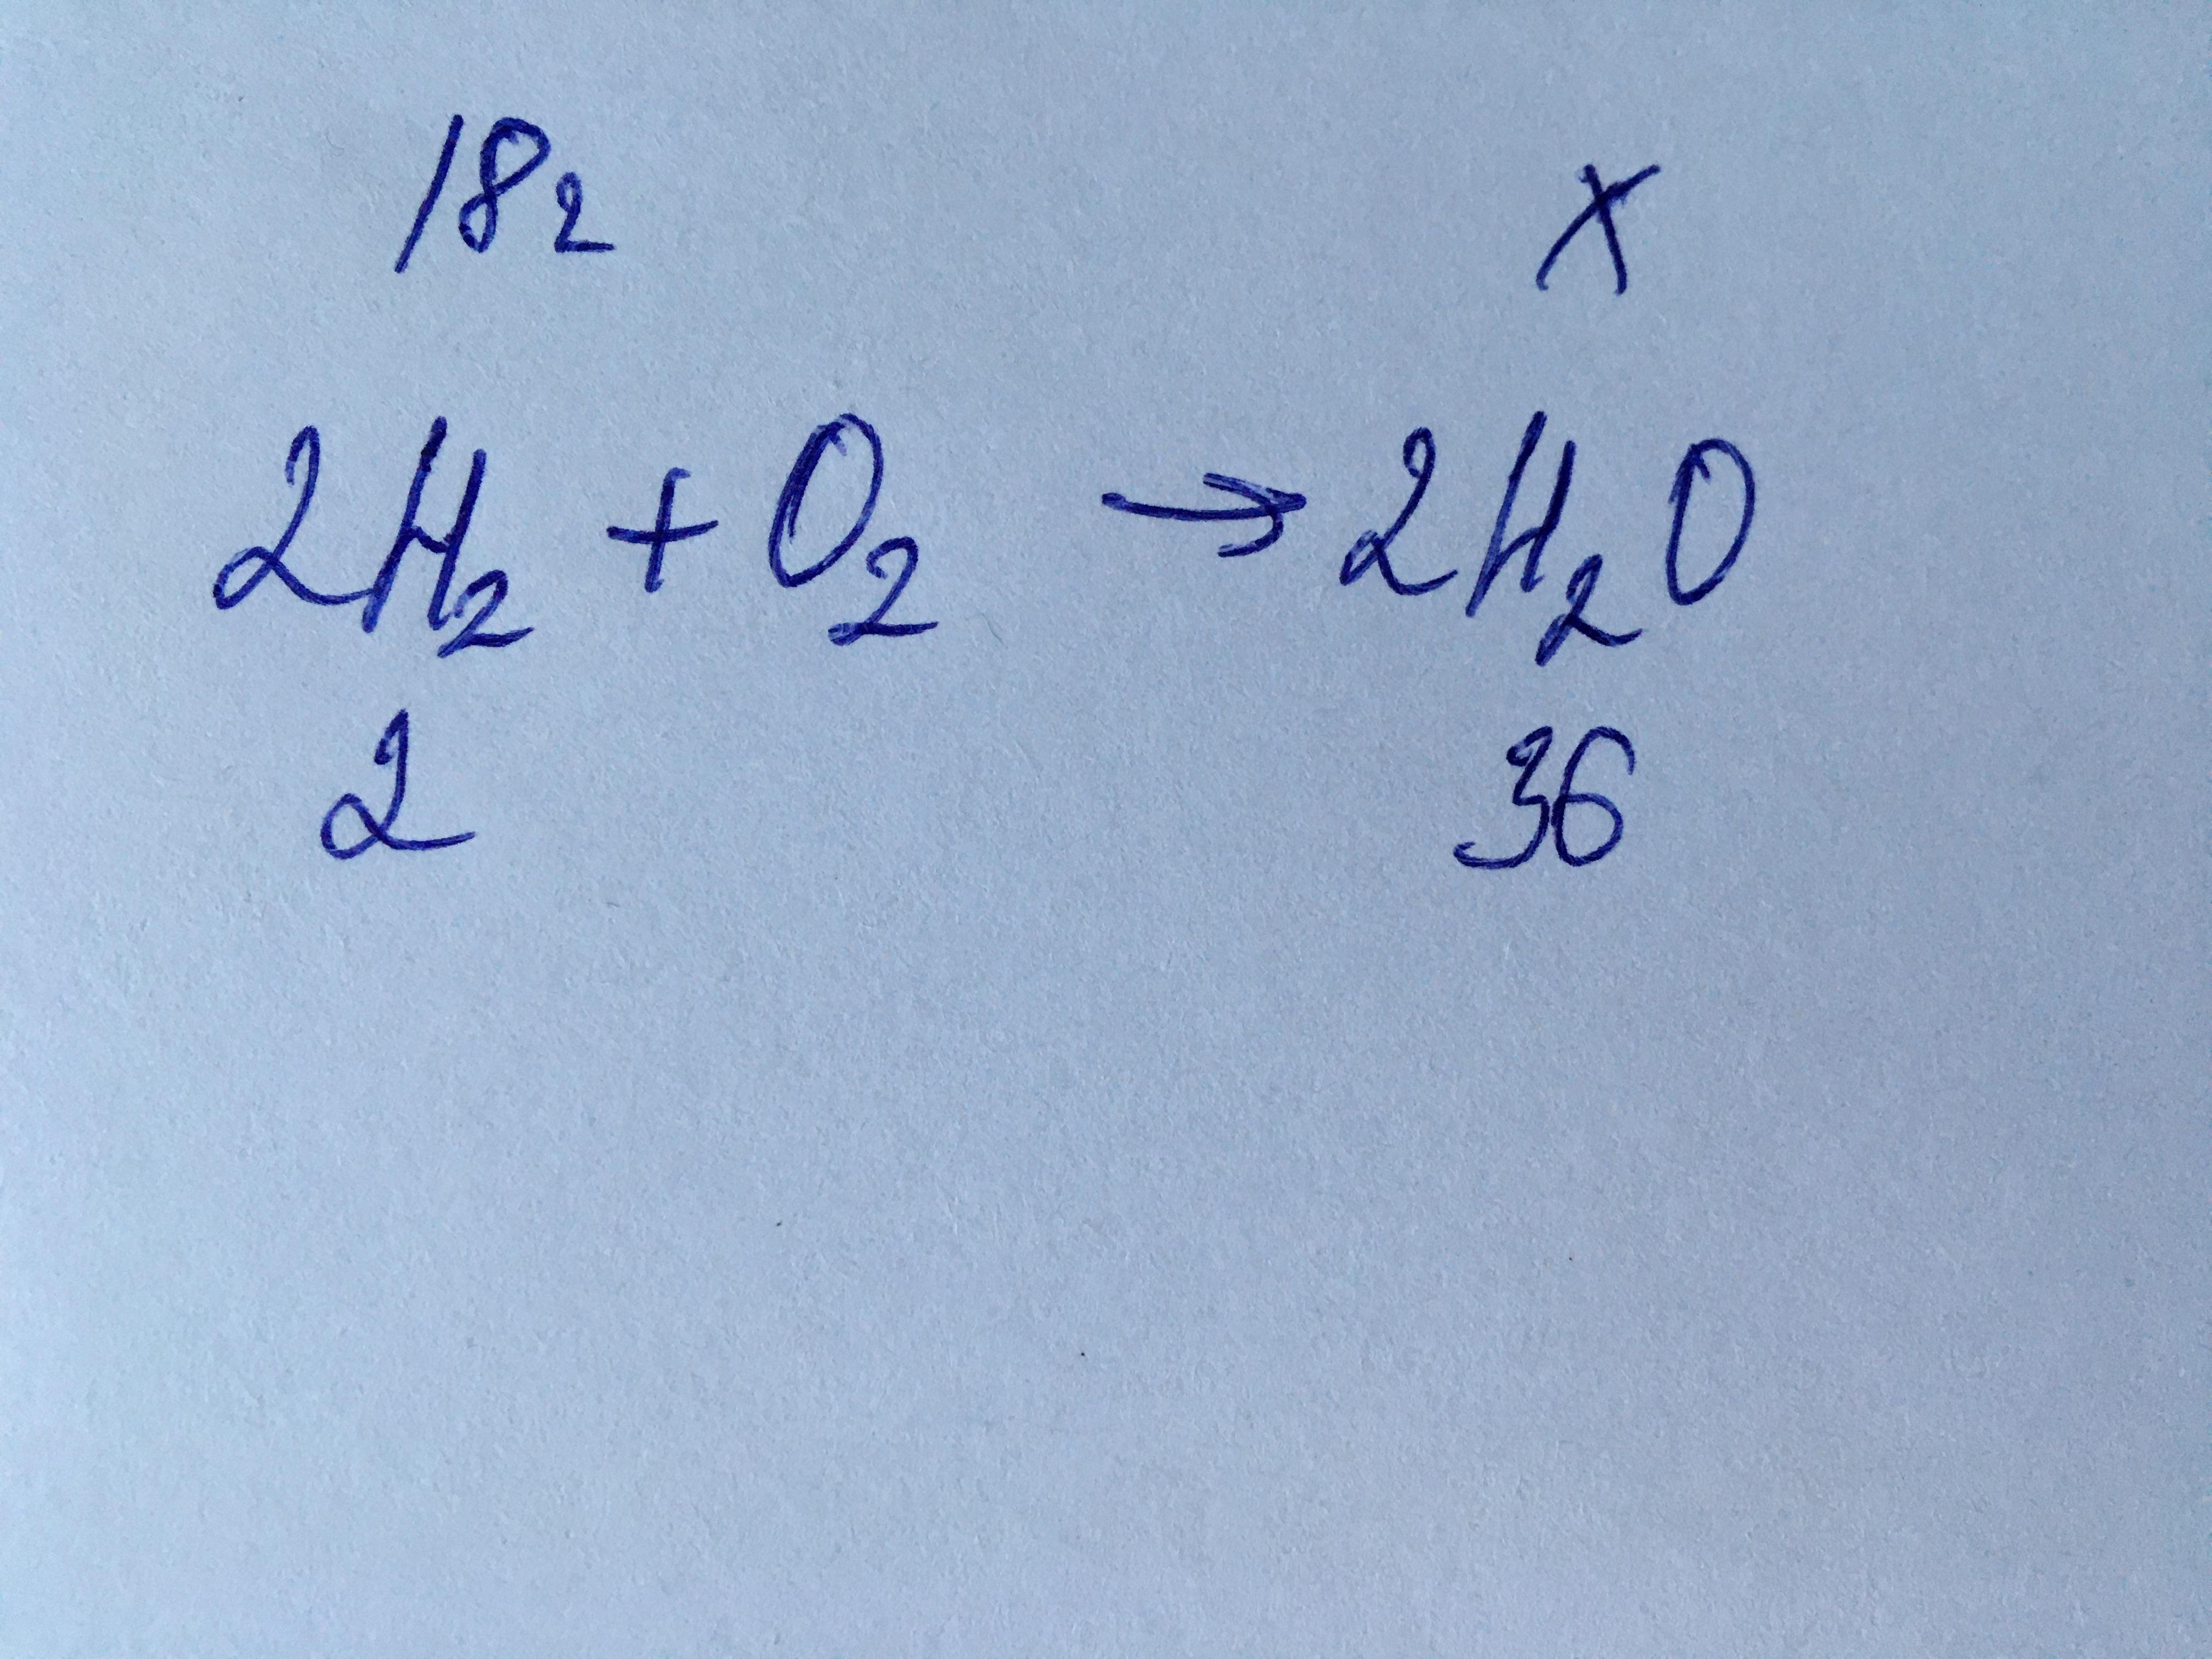 18г x
2H₂ + O₂ → 2H₂O
2 36